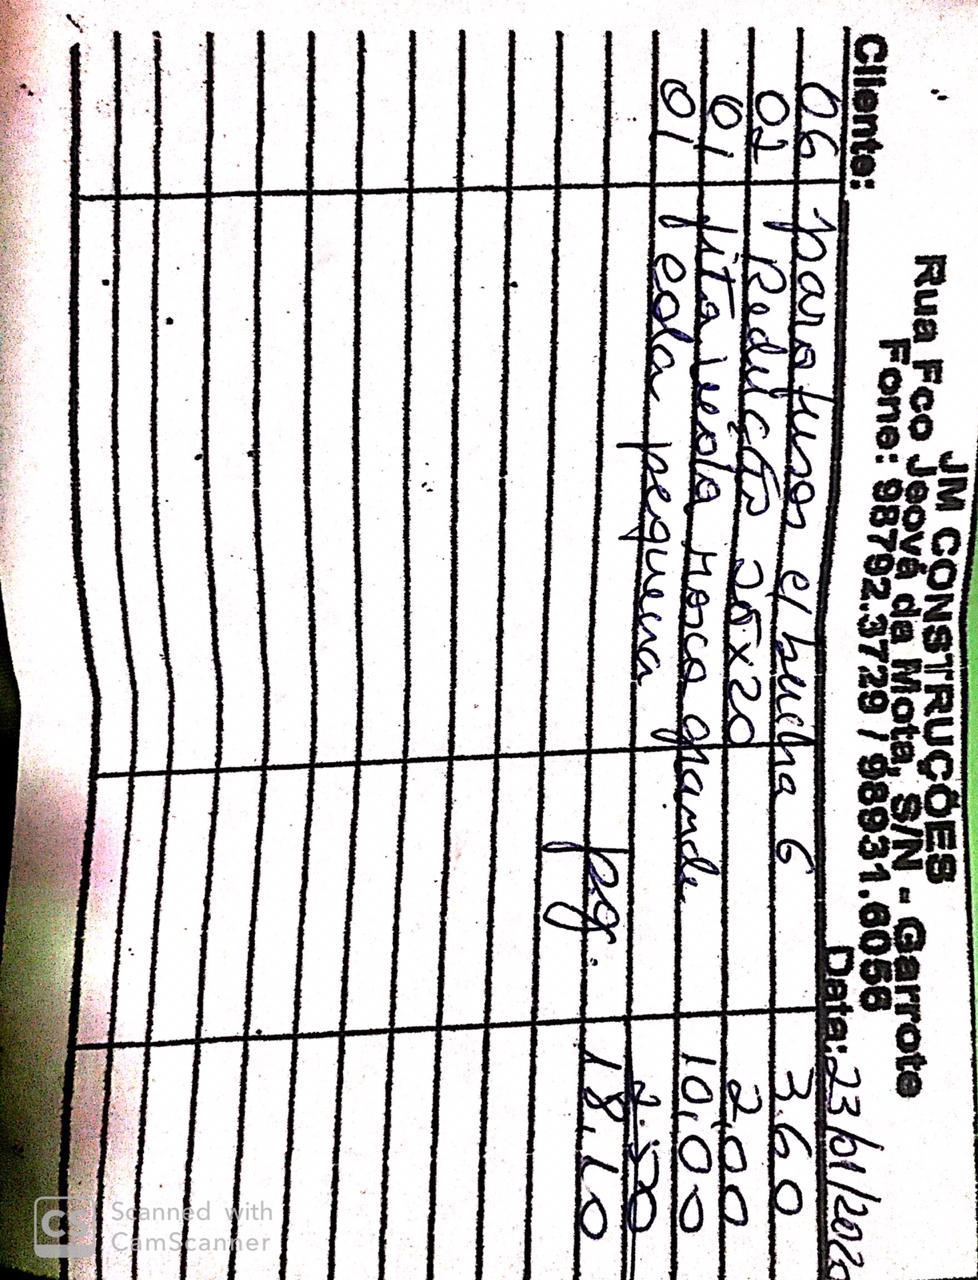 JM CONSTRUÇÕES
Rua Fco Jeová da Mota, S/N - Garrote
Fone: 98792.3729 / 98931.6056
Cliente: Data: 23/01/202
06 parafuso c/ bucha 6 3.60
01 Redução 25x20 2,00
01 fita veda rosca grande 10,00
01 cola pequena 2.50
pg. 18,10
CS Scanned with
CamScanner